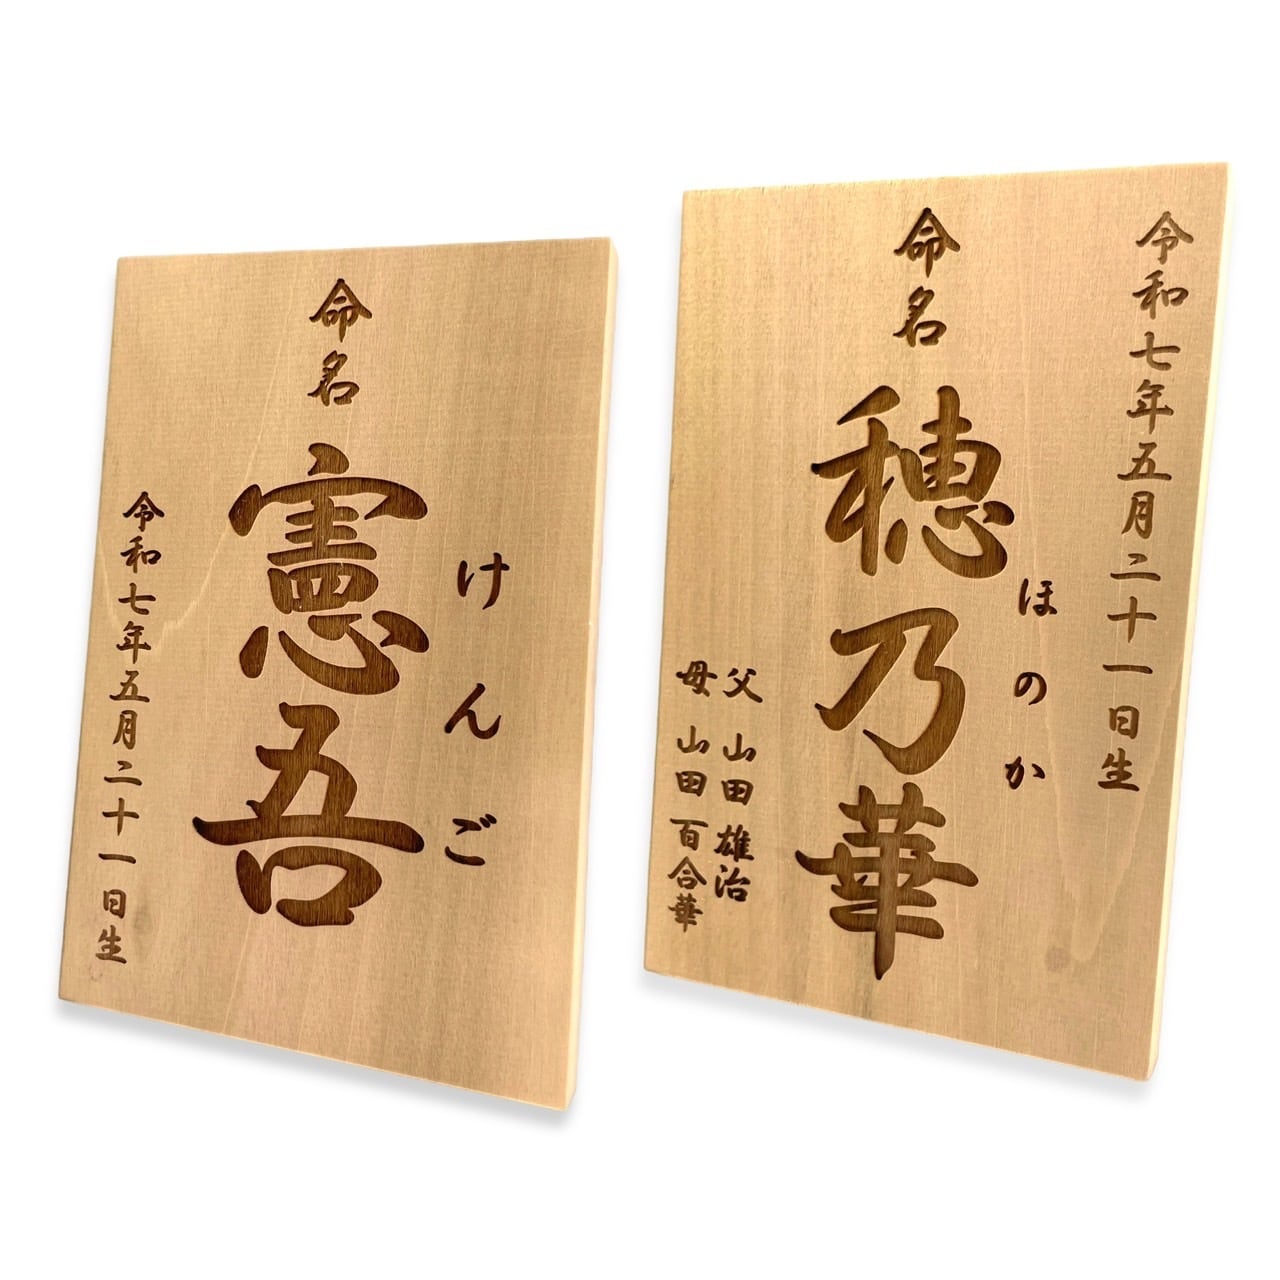 命名
憲吾
けんご
令和七年五月二十一日生
令和七年五月二十一日生
命名
穂乃華
ほのか
父 山田雄治
母 山田百合華